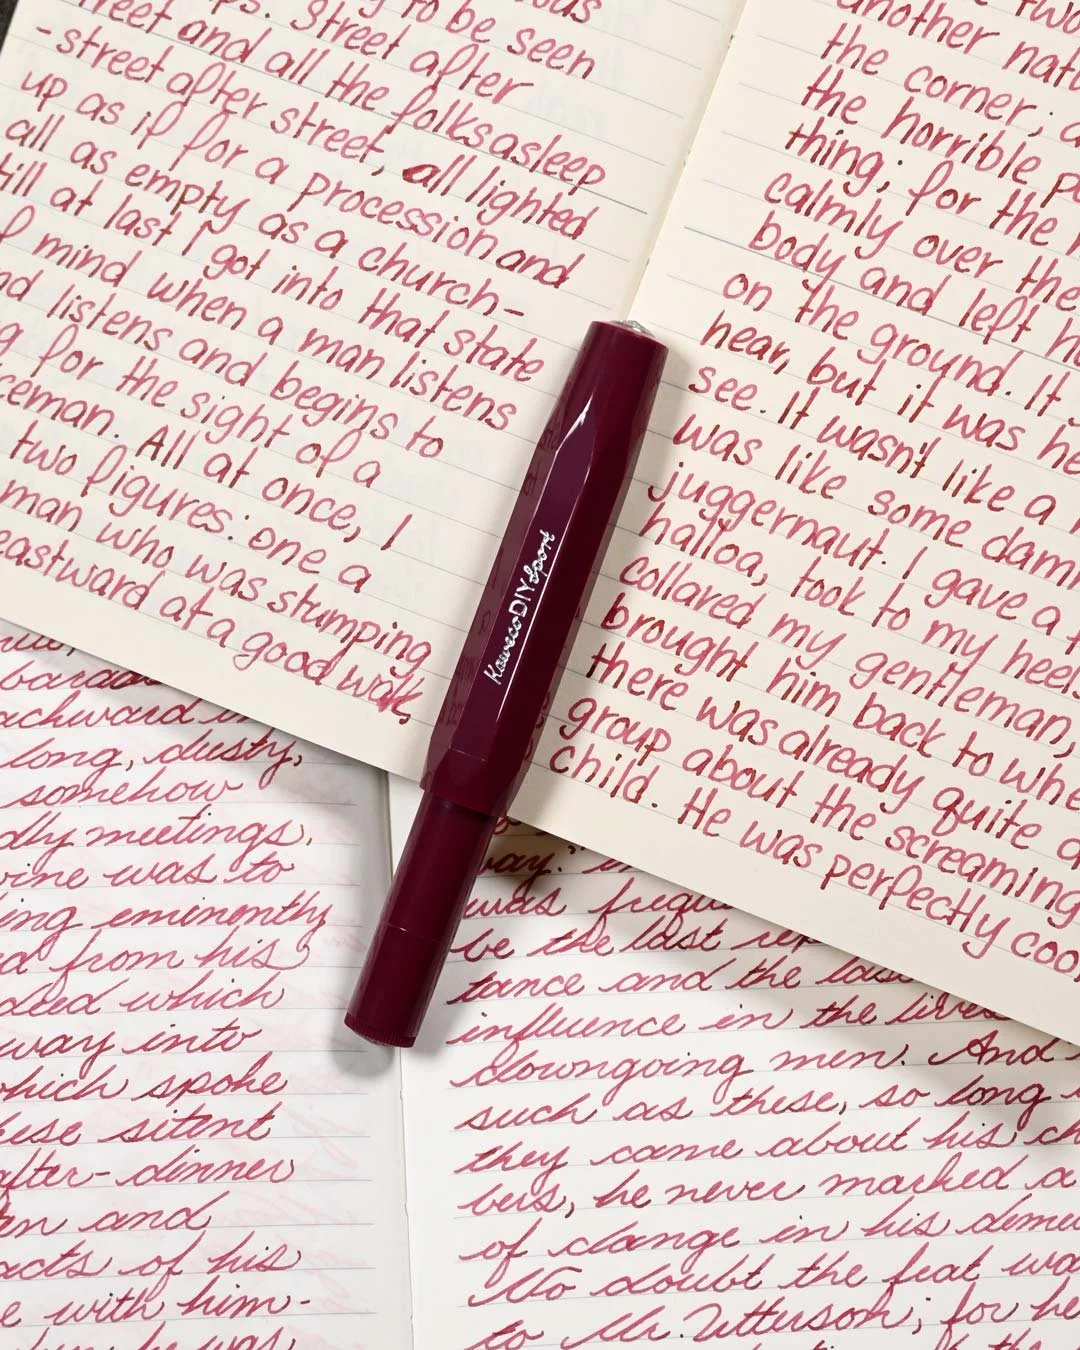 to be seen
street and all the folks asleep
-street after street, all lighted
up as if for a procession and
all as empty as a church-
till at last I got into that state
of mind when a man listens
and listens and begins to
for the sight of a
two figures: one a
man who was stumping
eastward at a good walk,
another
the corner;
the horrible
thing; for the
calmly over the
body and left
on the ground. It
hear, but it was
see. It wasn't like a
was like some
juggernaut. I gave a
halloa, took to my heels
collared my gentleman,
brought him back to
there was already quite
group about the screaming
child. He was perfectly
Kaweco DIY Sport
long, dusty,
somehow
meetings,
wine was to
eminently
from his
which
way into
which spoke
these sitent
after-dinner
and
acts of his
with him-
he was
way."
was
be the last
tance and the last
influence in the lives
downgoing men. And
such as these, so long
they came about his
bers, he never marked a
of clange in his
No doubt the feat
to Mr. Utterson; for he